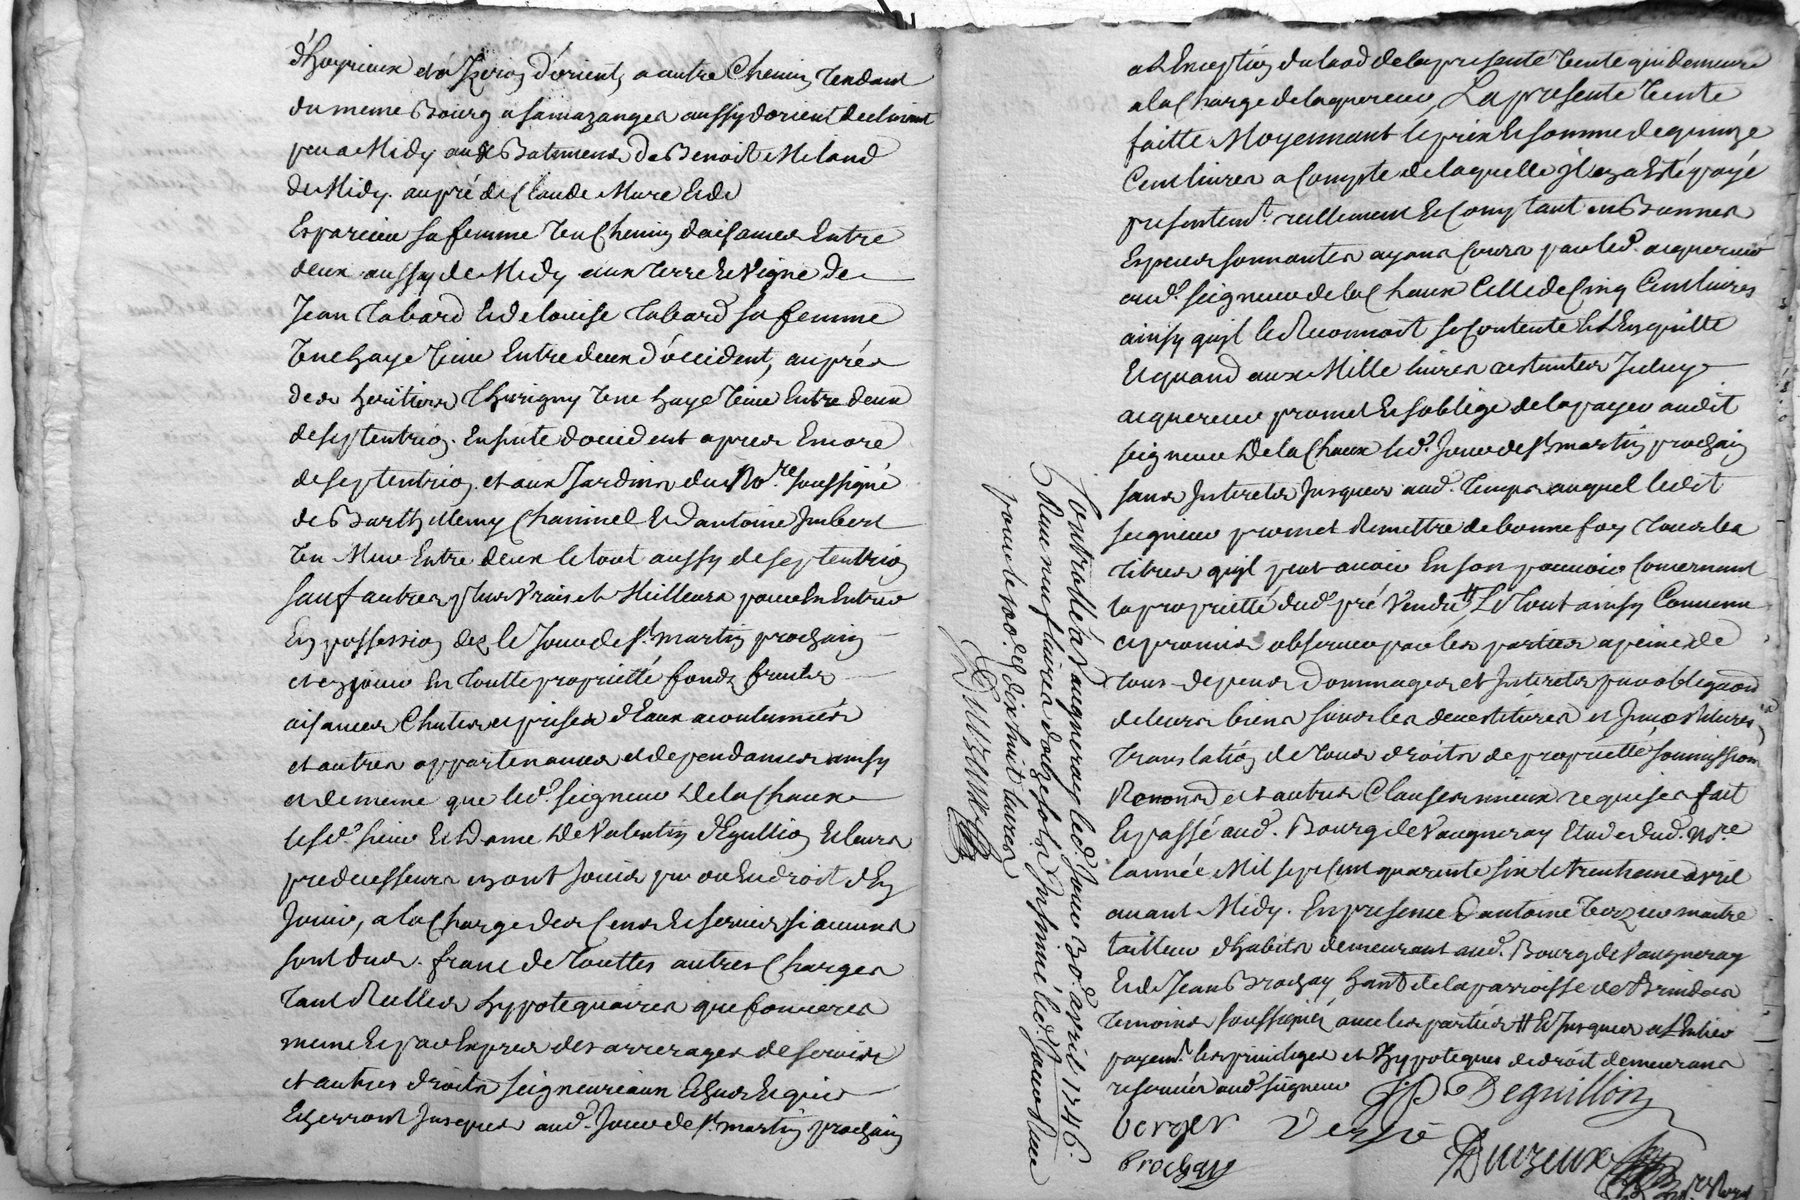 d'hoyrieux et à d'orient, a autre Chemin tendant
du meme Bourg a samazanges aussy d'orient declinant
peu a Midy aux Batimens de Benoist Meland
de Midy. au pré de Claude Mure et de
sa femme Un Chemin d'aisances Entre
deux aussy de Midy aux terre et Vigne de
Jean Tabard et de Louise Tabard sa femme
Une haye Vive Entre deux d'occident, au prés
des heritiers Thurigny Une haye Vive Entre deux
de septentrion. Ensuite d'occident apres Encore
de septentrion. et aux Jardins du No.re soussigné
de Barthellemy Chaninel et d'antoine Imbert
Un Mur Entre deux le tout aussy de septentrion
sauf autres plus Vrais et Meilleurs pour En Entrer
En possession dez le Jour de st. martin prochain
et en jouir En toutte proprietté fonds fruits
aisances Chutes et prises d'Eaux acoutumées
et autres appartenances et dependances ainsy
et de meme que led. seigneur De la Chaux
lesd. sieur et Dame De Valentin d'Eguillion et leurs
predecesseurs en ont Jouis pu ou Eu droit d'En
Jouir, a la Charge des Cens et servis si aucuns
sont dus. franc de touttes autres Charges
tant Reelles hypotequaires que foncieres
meme et par Exprés des arrerages de servis
et autres droits seigneuriaux Echus et qui
Echerront Jusques aud. Jour de st. martin prochain
a l'Exception du laod de la presente Vente qui demeure
a la Charge de laquereur, La presente Vente
faitte Moyennant le prix et somme de quinze
Cent livres a Compte de laquelle il en a Esté payé
presentemt. reellement et Comptant en Bonnes
Especes sonnantes ayans Cours par led. acquereur
aud. seigneur de la Chaux Celle de Cinq Cent livres
ainsy quil le Reconnoit se Contente Et l'En quitte
Et quand aux Mille livres restantes Icelluy
acquereur promet Et s'oblige de la payer audit
seigneur De la Chaux led. Jour de st. martin prochain
sans Interets Jusques aud. temps auquel ledit
seigneur promet Remettre de bonne foy tous les
titres quil peut avoir En son pouvoir Concernant
la proprietté dud. pré Vendu # Le tout ainsy Convenu
et promis observer par les parties a peine de
tous depens Dommages et Interets par obligaon
de leurs biens sous les devestitures et Investitures
translation de tous droits de proprietté soumissions
Renond. et autres Clauses mieux requises fait
Et passé aud. Bourg de Vaugneray Etude dud. No.re
l'année Mil sept Cent quarente six le trentieme avril
avant Midy. En presence d'antoine maitre
tailleur d'habits demeurant aud. Bourg de Vaugneray
Et de Jean Brochay hant de la parroisse de Brindas
temoins soussignés avec les parties # Et Jusques a l'Entier
payemt. les privileges et hypoteques de droit demeurans
reservés aud. seigneur
JP Deguillion
berger
Brochay
Duvzeux
Controllé a Vaugneray led. Jour 30e. avril 1746.
Reçu neuf livres douze sols Insinué led. Jour Reçu
pour le 100e. den. dix huit livres
Duvzeux